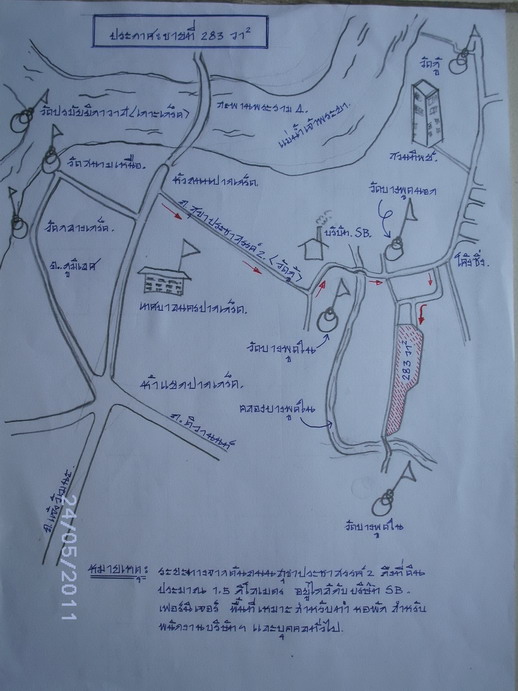 ประกาศขายที่ 283 วา²
วัดกู้
วัดปรมัยยิกาวาส (เกาะเกร็ด)
สะพานพระราม 4.
แม่น้ำเจ้าพระยา.
สวนทิพย์.
วัดสนามเหนือ.
หัวถนนปากเกร็ด.
วัดบางพูดนอก
วัดกลางเกร็ด.
ถ. สุขาประชาสรรค์ 2. (วัดกู้)
บริษัท. SB.
ถ. ภูมิเวศ
โค้งซิ่ง.
เทศบาลนครปากเกร็ด.
วัดบางพูดใน
283 วา²
ห้าแยกปากเกร็ด.
คลองบางพูดใน
ถ. ติวานนท์
วัดบางพูดใน
24/05/2011
หมายเหตุ: ระยะทางจากต้นถนนสุขาประชาสรรค์ 2 ถึงที่ดิน
ประมาณ 1.5 กิโลเมตร อยู่ใกล้กับบริษัท SB.
เฟอร์นิเจอร์ พื้นที่เหมาะสำหรับทำ หอพัก สำหรับ
พนักงานบริษัทฯ และบุคคลทั่วไป.